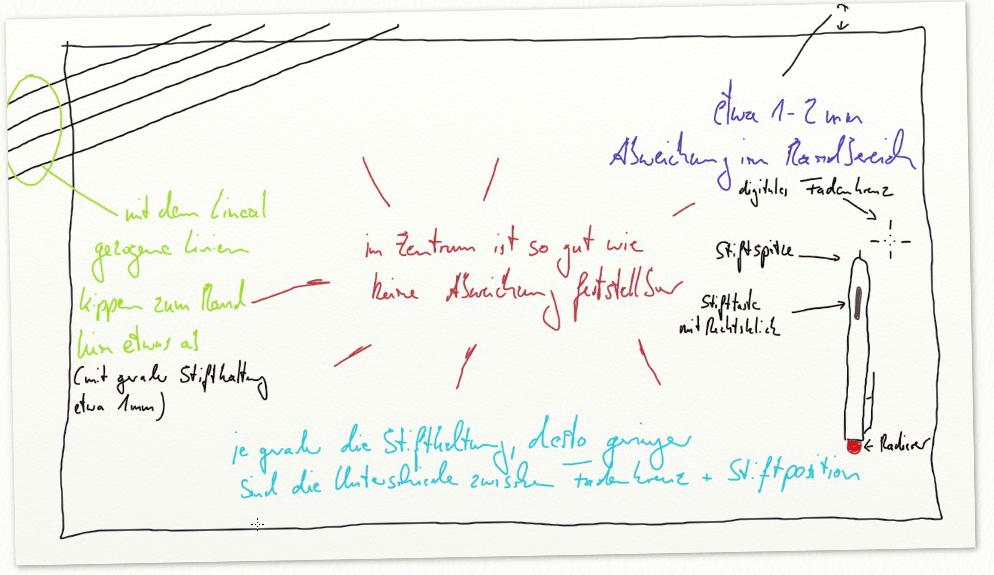 etwa 1-2 mm
Abweichung im Randbereich
digitales Fadenkreuz
Stiftspitze
Stifttaste
mit Rechtsklick
Radierer
mit dem Lineal
gezogene Linien
kippen zum Rand
hin etwas ab
(mit grader Stifthaltung
etwa 1mm)
im Zentrum ist so gut wie
keine Abweichung feststellbar
je grader die Stifthaltung, desto geringer
sind die Unterschiede zwischen Fadenkreuz + Stiftposition